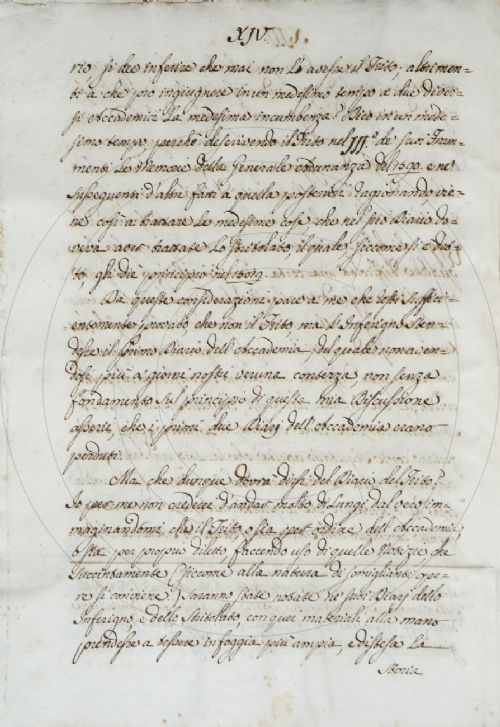 XIV.
rio si dee inferire che mai non l'avesse il Trito; altrimen=
ti a che prò ingiugnere in un medesimo tempo a due diver=
si Accademici la medesima incumbenza? Dico in un mede=
simo tempo, perchè descrivendo il Trito nel III.º de' suoi Fram=
menti le Memorie della Generale ordinanza del 1590. e ne'
susseguenti d'altri fatti a quella posteriori ragionando, vie=
ne così a trattare le medesime cose che nel suo Diario do=
veva aver trattate lo Stritolato, il quale, siccome si è det=
to, gli diè principio nel
Da queste considerazioni pare a me che resti suffici=
entemente provato che non il Trito, ma l'Inferigno sten=
desse il Primo Diario dell'Accademia, del quale non aven=
dosi più a' giorni nostri veruna contezza, non senza
fondamento sul principio di questa mia Discussione
asserii, che i primi due Diarj dell'Accademia erano
perduti.
Ma che dunque dovrà dirsi del Diario del Trito?
Io per me non crederei d'andar molto di lungi dal vero im=
maginandomi, che il Trito, o sia per ordine dell'Accademia,
o sia per proprio diletto, facendo uso di quelle Notizie, che
succintamente (siccome alla natura di somiglianti ope=
re si conviene) saranno state notate ne' suoi Diarj dallo
Inferigno, e dallo Stritolato, con quei materiali alla mano
prendesse a tessere in foggia più ampia, e distesa la
Storia